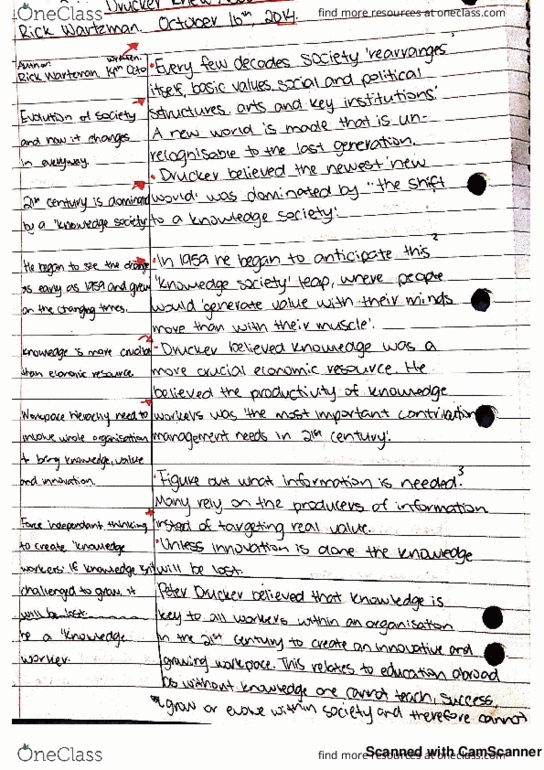 OneClass
find more resources at oneclass.com
Drucker knew
Rick Wartzman. October 16th 2014.
Author: written:
Rick Wartzman 16th Octo
Evolution of society
and how it changes
in everyway.
21st century is dominated
by a "knowledge society
He began to see the change
as early as 1959 and grew
on the changing times.
Knowledge is more crucial
than economic resource.
Workplace hierachy need to
involve whole organisation
+ bring knowledge, value
and innovation.
Force independant thinking
to create "knowledge
workers. If knowledge isnt
challenged to grow, it
will be lost.
be a "knowledge
worker.
• Every few decades society 'rearranges
itself, basic values, social and political
structures, arts and key institutions.'
A new world is made that is un-
recognisable to the last generation.
• Drucker believed the newest 'new
world' was dominated by "the shift
to a knowledge society'.
• In 1959 he began to anticipate this 2
'knowledge society' leap, where people
would 'generate value with their minds
more than with their muscle'.
- Drucker believed knowledge was a
more crucial economic resource. He
believed the productivity of knowledge
workers was 'the most important contribution
management needs in 21st century'.
• Figure out what information is needed. 3
Many rely on the producers of information
instead of targeting real value.
• Unless innovation is done the knowledge
will be lost.
Peter Drucker believed that knowledge is
key to all workers within an organisation
in the 21st century to create an innovative and
growing workpace. This relates to education abroad
as without knowledge one cannot teach, success,
grow or evolve within society and therefore cannot
OneClass
find more resources at oneclass.com
Scanned with CamScanner